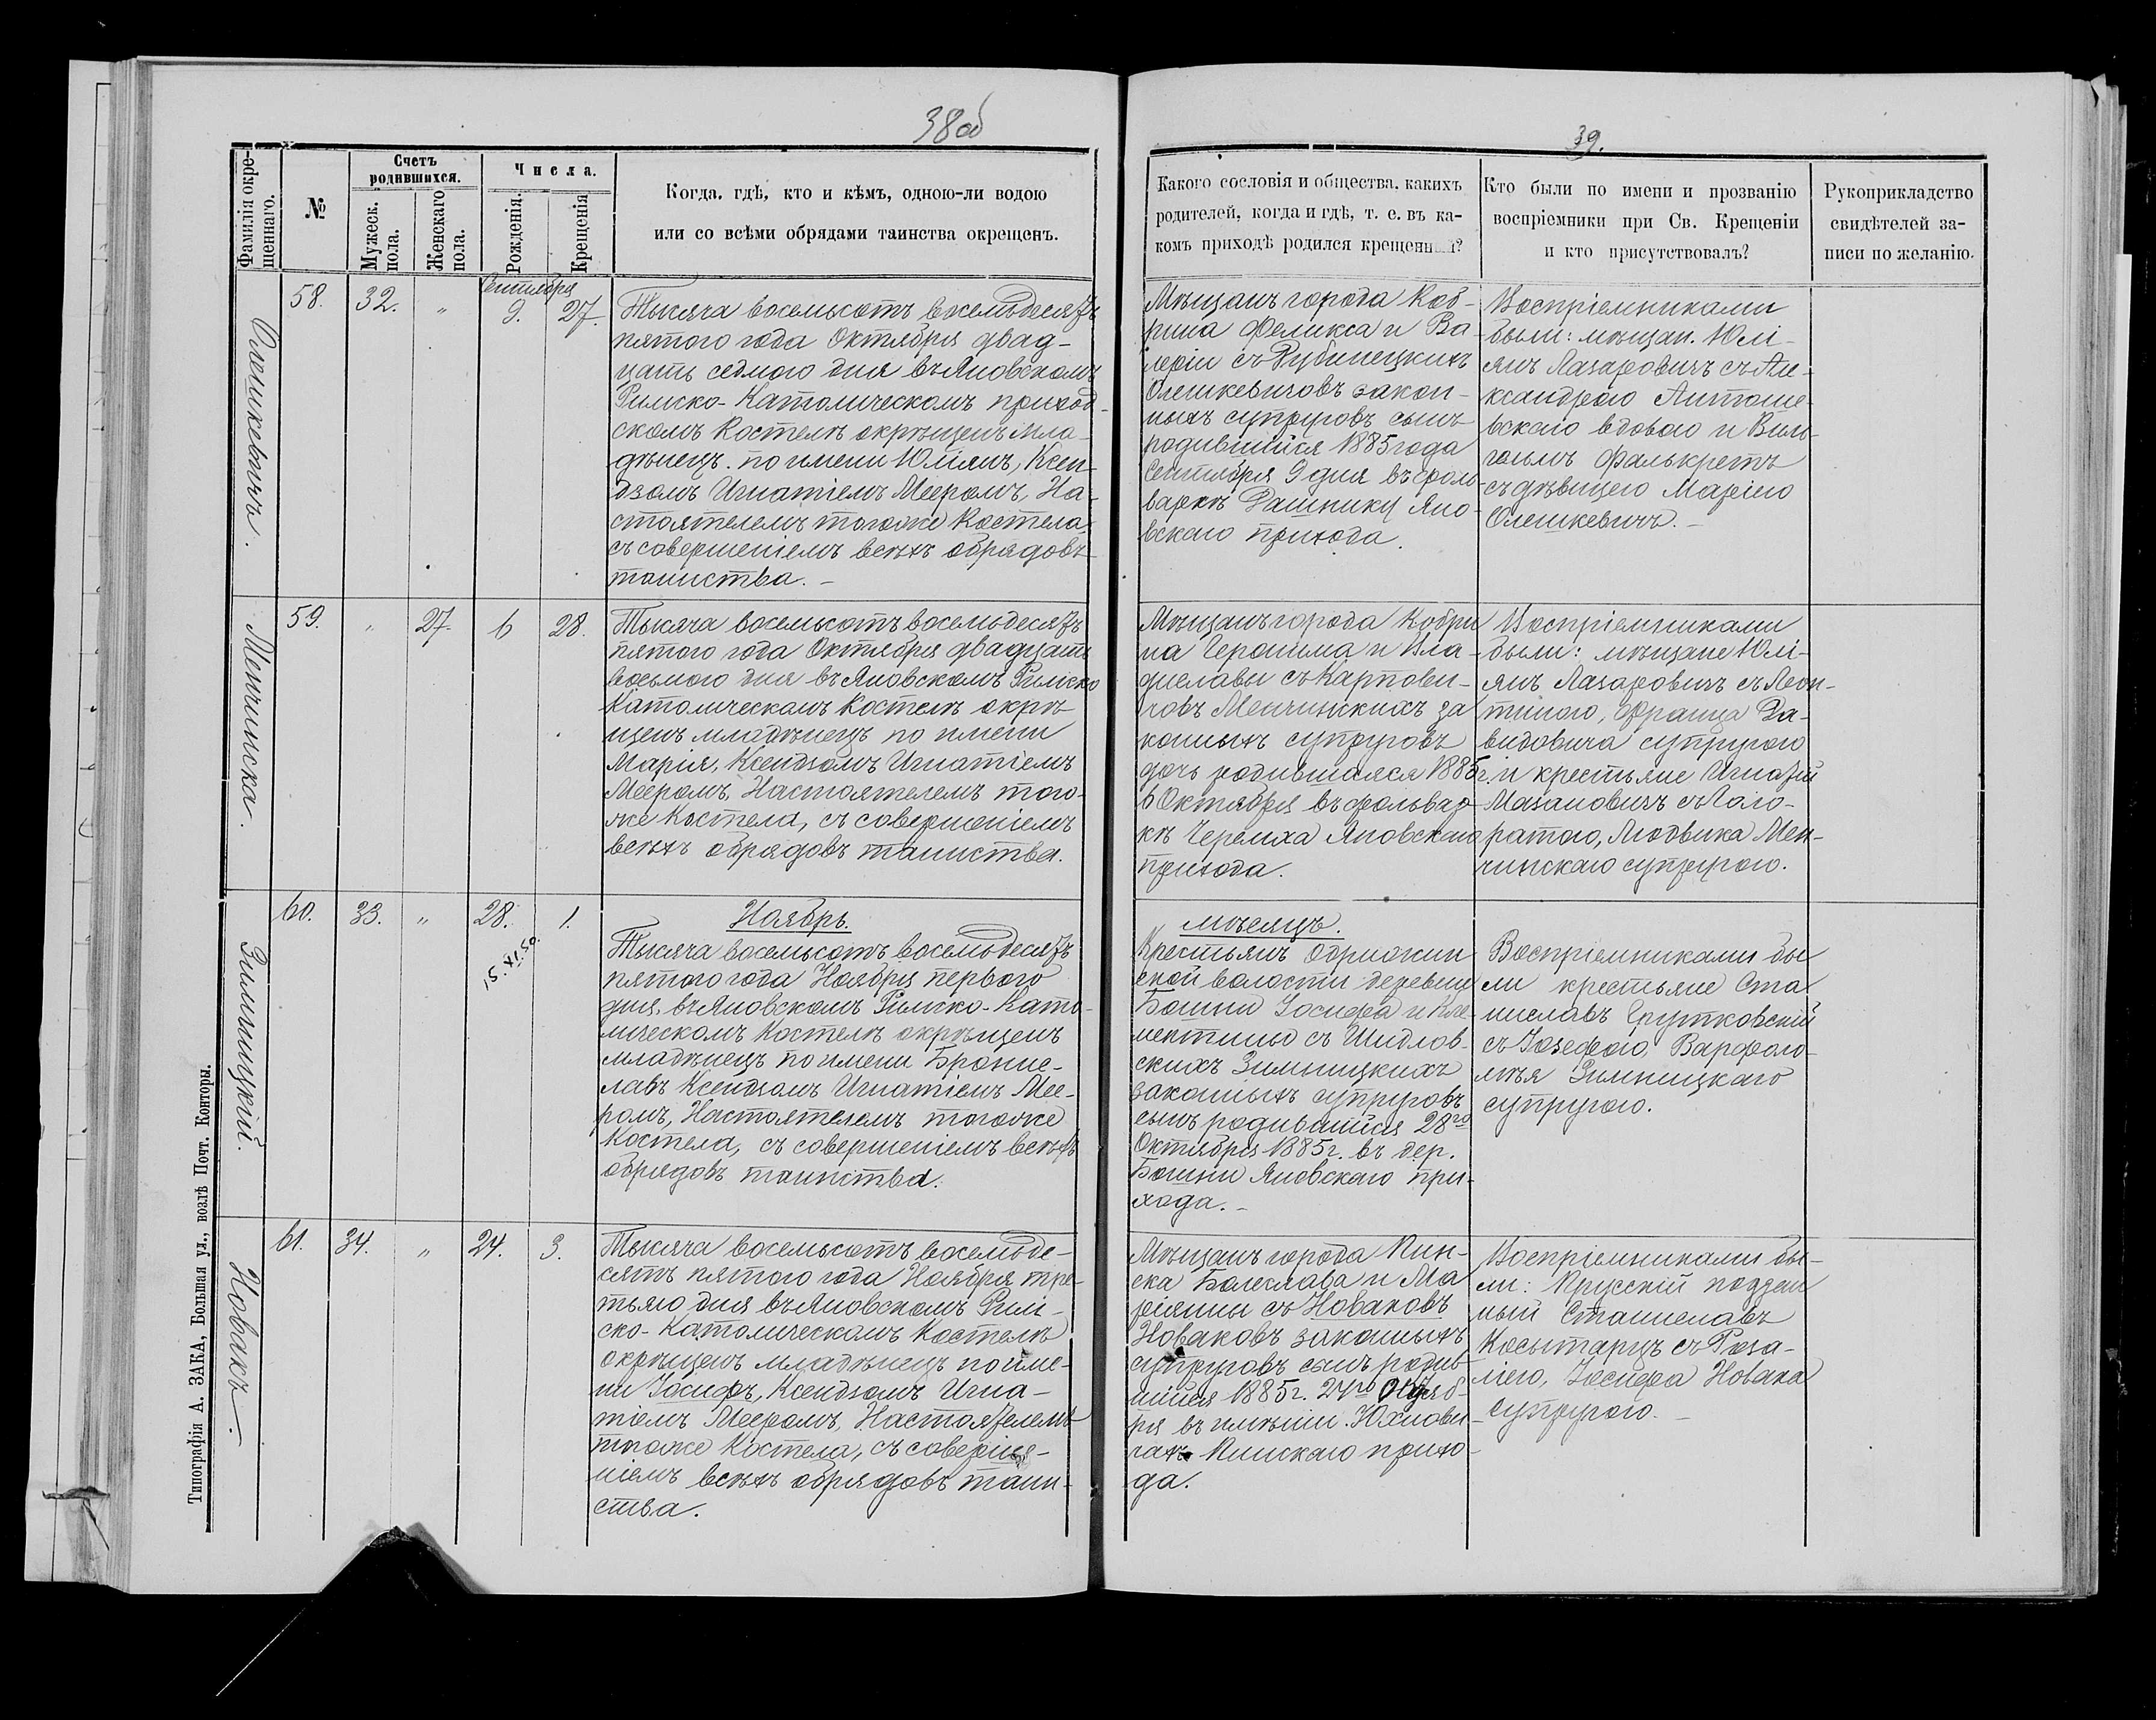 38об
39.
Фамилія окре-
щеннаго.
№
Счетъ
родившихся.
Мужеск.
пола.
Женскаго
пола.
Числа.
Рожденія.
Крещенія
Когда, гдѣ, кто и кѣмъ, одною-ли водою
или со всѣми обрядами таинства окрещенъ.
Какого сословія и общества, какихъ
родителей, когда и гдѣ, т. е. въ ка-
комъ приходѣ родился крещенный?
Кто были по имени и прозванію
воспріемники при Св. Крещеніи
и кто присутствовалъ?
Рукоприкладство
свидѣтелей за-
писи по желанію.
Олешкевичъ.
58.
32.
"
Сентября
9.
27.
Тысяча восемьсотъ восемьдесятъ
пятого года Октября двад-
цать седмого дня въ Яновскомъ
Римско-Католическомъ приход-
скомъ Костелѣ окрѣщенъ мла-
дѣнецъ по имени Юліянъ, Ксен-
дзомъ Игнатіемъ Мееромъ, На-
стоятелемъ тогоже Костела
съ совершеніемъ всѣхъ обрядовъ
таинства. –
Мѣщанъ города Коб-
рина Феликса и Ва-
леріи съ Рубинецкихъ
Олешкевичовъ закон-
ныхъ супруговъ сынъ
родившійся 1885 года
Сентября 9 дня въ фоль-
варкѣ Дашники Яно-
вскаго прихода.
Воспріемниками
были: мѣщан. Юлі-
янъ Лазаровичъ съ Але-
ксандрою Антоше-
вскаго вдовою и Виль-
гельмъ Фалькретъ
съ дѣвицею Маріею
Олешкевичъ. –
Менчинска.
59.
"
27.
6
28.
Тысяча восемьсотъ восемьдесятъ
пятого года Октября двадцать
восьмого дня въ Яновскомъ Римско
Католическомъ Костелѣ окрѣ-
щенъ младѣнецъ по имени
Марія, Ксендзомъ Игнатіемъ
Мееромъ, Настоятелемъ того-
же Костела, съ совершеніемъ
всѣхъ обрядовъ таинства.
Мѣщанъ города Кобри
на Геронима и Вла-
диславы съ Карпови-
човъ Менчинскихъ за
конныхъ супруговъ
дочь родившаяся 1885г.
6 Октября въ фольвар-
кѣ Черемха Яновскаго
прихода.
Воспріемниками
были: мѣщане Юлі-
янъ Лазаровичъ съ Леон-
тиною, Франца Да-
видовича супругою
и крестьяне Игнатій
Мазановичъ съ Гоно-
ратою, Людвика Мен-
чинскаго супругою.
Зимницкій.
60.
33.
"
28.
15.XI.50.
1.
Ноябрь.
Тысяча восемьсотъ восемьдесятъ
пятого года Ноября первого
дня, въ Яновскомъ Римско-Като-
лическомъ Костелѣ окрѣщенъ
младѣнецъ по имени Брони-
славъ Ксендзомъ Игнатіемъ Мее-
ромъ, Настоятелемъ тогоже
Костела, съ совершеніемъ всѣхъ
обрядовъ таинства.
мѣсяцъ.
Крестьянъ Одрижин
ской волости деревни
Іосифа и Кле-
ментины съ Шидлов-
скихъ Зимницкихъ
законныхъ супруговъ
сынъ родившійся 28го
Октября 1885г. въ дер.
Яновскаго при-
хода. –
Воспріемниками бы
ли крестьяне Ста
ниславъ Грутковскій
съ Іозефою, Варфоло-
мѣя Зимницкаго
супругою.
Новакъ.
61.
34.
"
24.
3.
Тысяча восемьсотъ восемьде-
сятъ пятого года Ноября тре-
тьяго дня въ Яновскомъ Рим-
ско-Католическомъ Костелѣ
окрѣщенъ младѣнецъ по име-
ни Іосифъ, Ксендзомъ Игна-
тіемъ Мееромъ, Настоятелемъ
тогоже Костела, съ соверше-
ніемъ всѣхъ обрядовъ таин-
ства.
Мѣщанъ города Пин-
ска Болеслава и Ма
ріянны съ Новаковъ
Новаковъ законныхъ
супруговъ сынъ родив-
шійся 1885г. 24го Октяб-
ря въ имѣніи Юхнови-
чахъ Пинскаго прихо-
да.
Воспріемниками бы-
ли: Прусскій поддан
ный Станиславъ
съ Роза-
ліею, Іосифа Новака
супругою. –
Типографія А. ЗАКА, Большая ул., возлѣ Почт. Конторы.